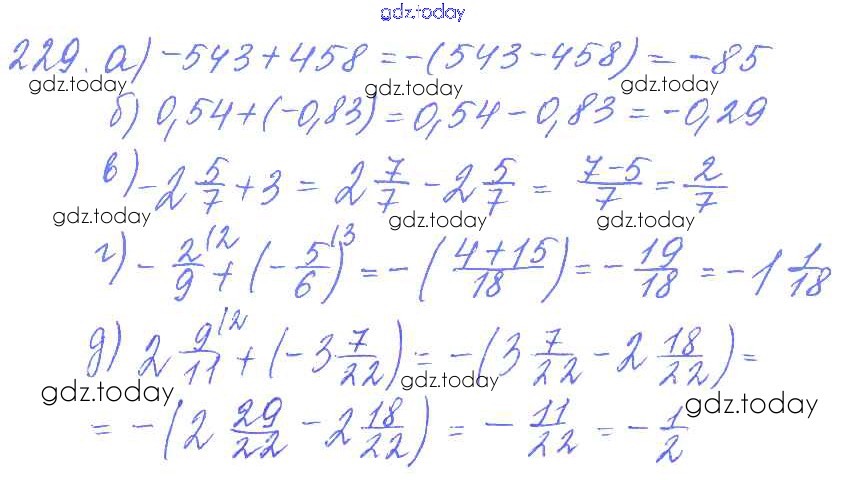 gdz.today
229. а) -543 + 458 = -(543 - 458) = -85
gdz.today gdz.today gdz.today
б) 0,54 + (-0,83) = 0,54 - 0,83 = -0,29
в) -2 5/7 + 3 = 2 7/7 - 2 5/7 = (7-5)/7 = 2/7
gdz.today gdz.today gdz.today
г) - 2/9 (2 + (- 5/6) (3 = - ((4+15)/18) = - 19/18 = -1 1/18
д) 2 9/11 (2 + (-3 7/22) = -(3 7/22 - 2 18/22) =
gdz.today gdz.today gdz.today
= -(2 29/22 - 2 18/22) = - 11/22 = - 1/2